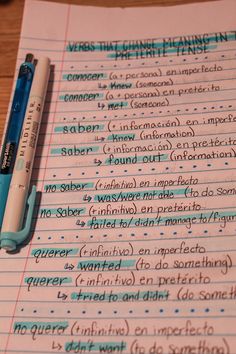 VERBS THAT CHANGE MEANING IN T
PRETERITE TENSE
conocer (a + persona) en imperfecto
↳ knew (someone)
conocer (a + persona) en pretérito
↳ met (someone)
saber (+ información) en imperfe
↳ knew (information)
saber (+ información) en pretérito
↳ found out (information)
no saber (+ infinitivo) en imperfecto
↳ was/were not able (to do som
no saber (+ infinitivo) en pretérito
↳ failed to/didn't manage to/figur
querer (+ infinitivo) en imperfecto
↳ wanted (to do something)
querer (+ infinitivo) en pretérito
↳ tried to and didn't (do someth
no querer (+ infinitivo) en imperfecto
↳ didn't want (to do something)